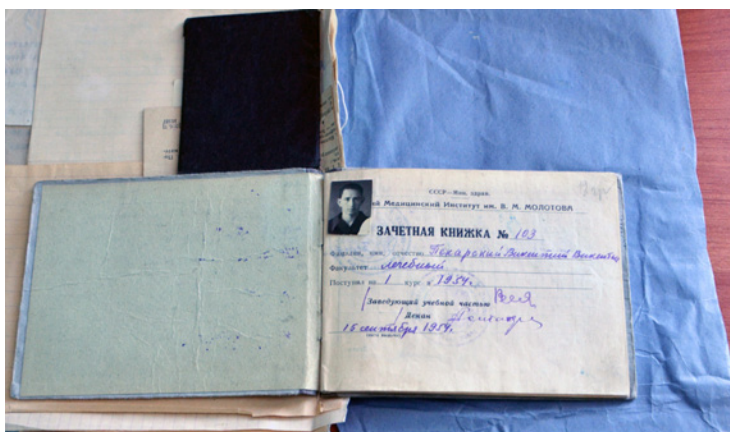 СССР—Мин. здрав.
ой Медицинский Институт им. В. М. МОЛОТОВА
ЗАЧЕТНАЯ КНИЖКА № 103
Фамилия, имя, отчество Пожарский Викентий
Факультет лечебный
Поступил на 1 курс в 1954г.
Заведующий учебной частью
Декан
15 сентября 1954.